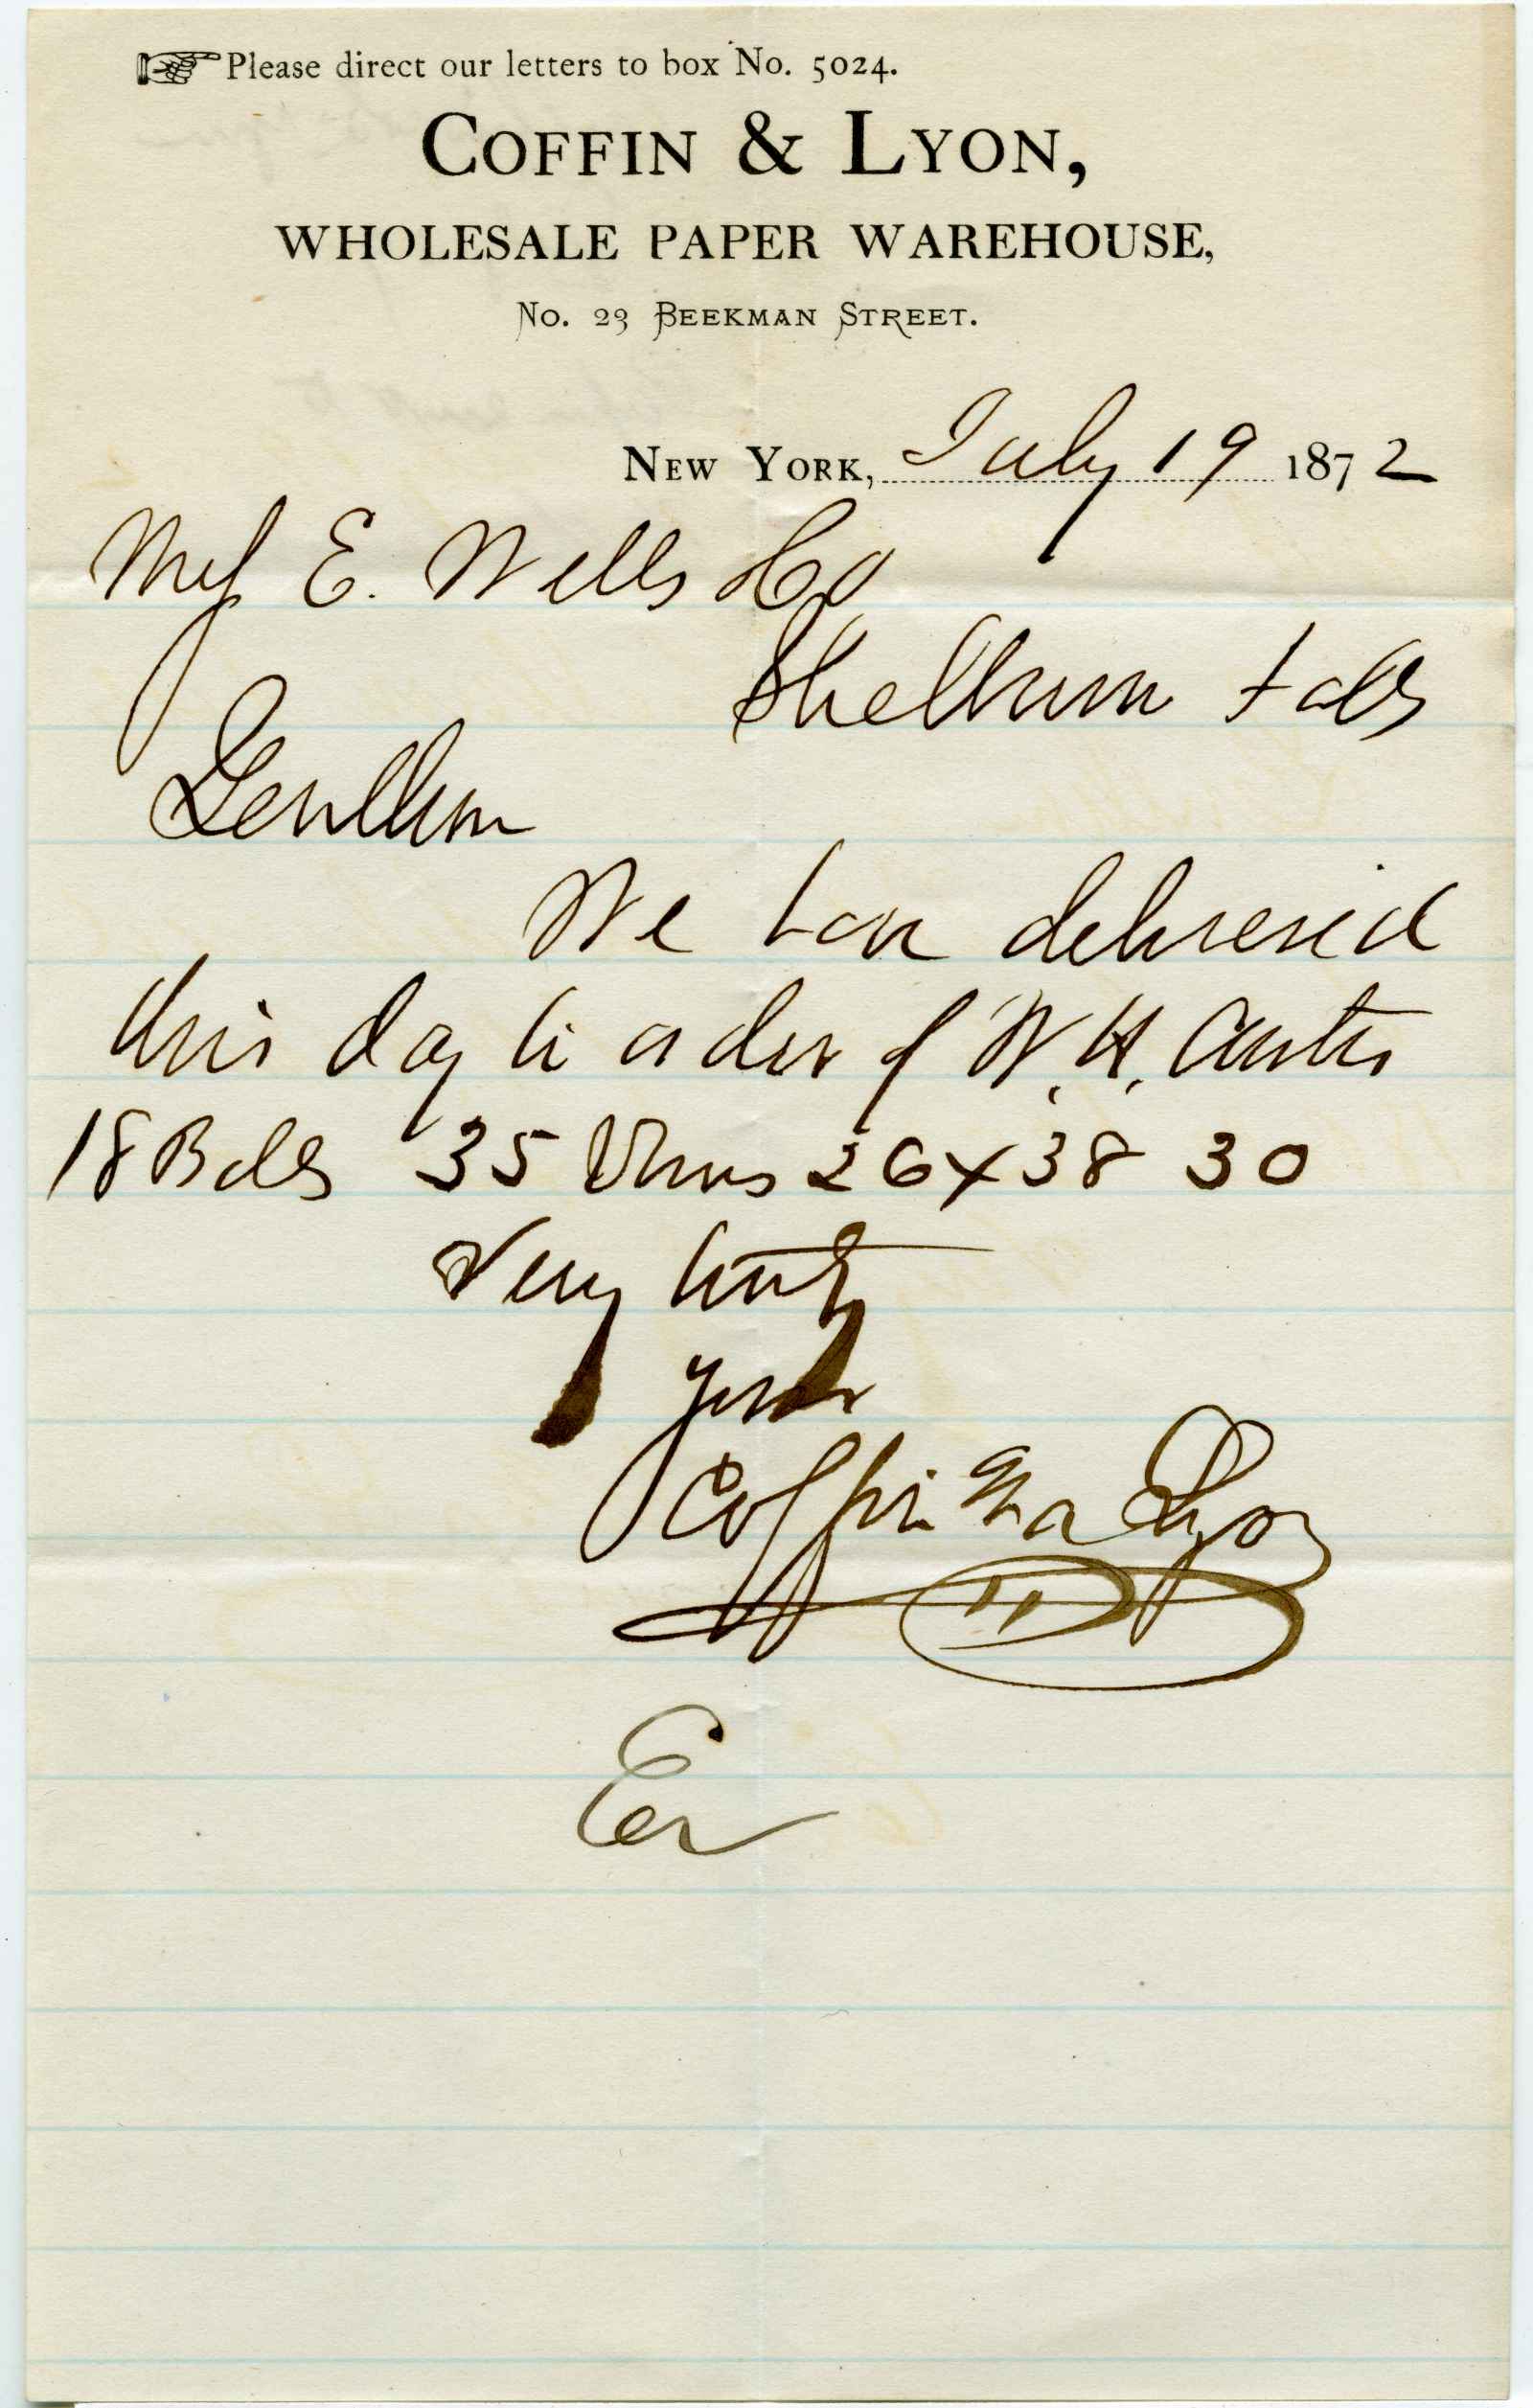 Please direct our letters to box No. 5024.
COFFIN & LYON,
WHOLESALE PAPER WAREHOUSE,
No. 23 BEEKMAN STREET.
NEW YORK, July 19 1872
E. Wells Co
Shelburn Falls
Gentlemen
We have delivered
this day to order of W. H.
18 Bdls 35 26 x 38 30
Very truly
yours
Coffin & Lyon